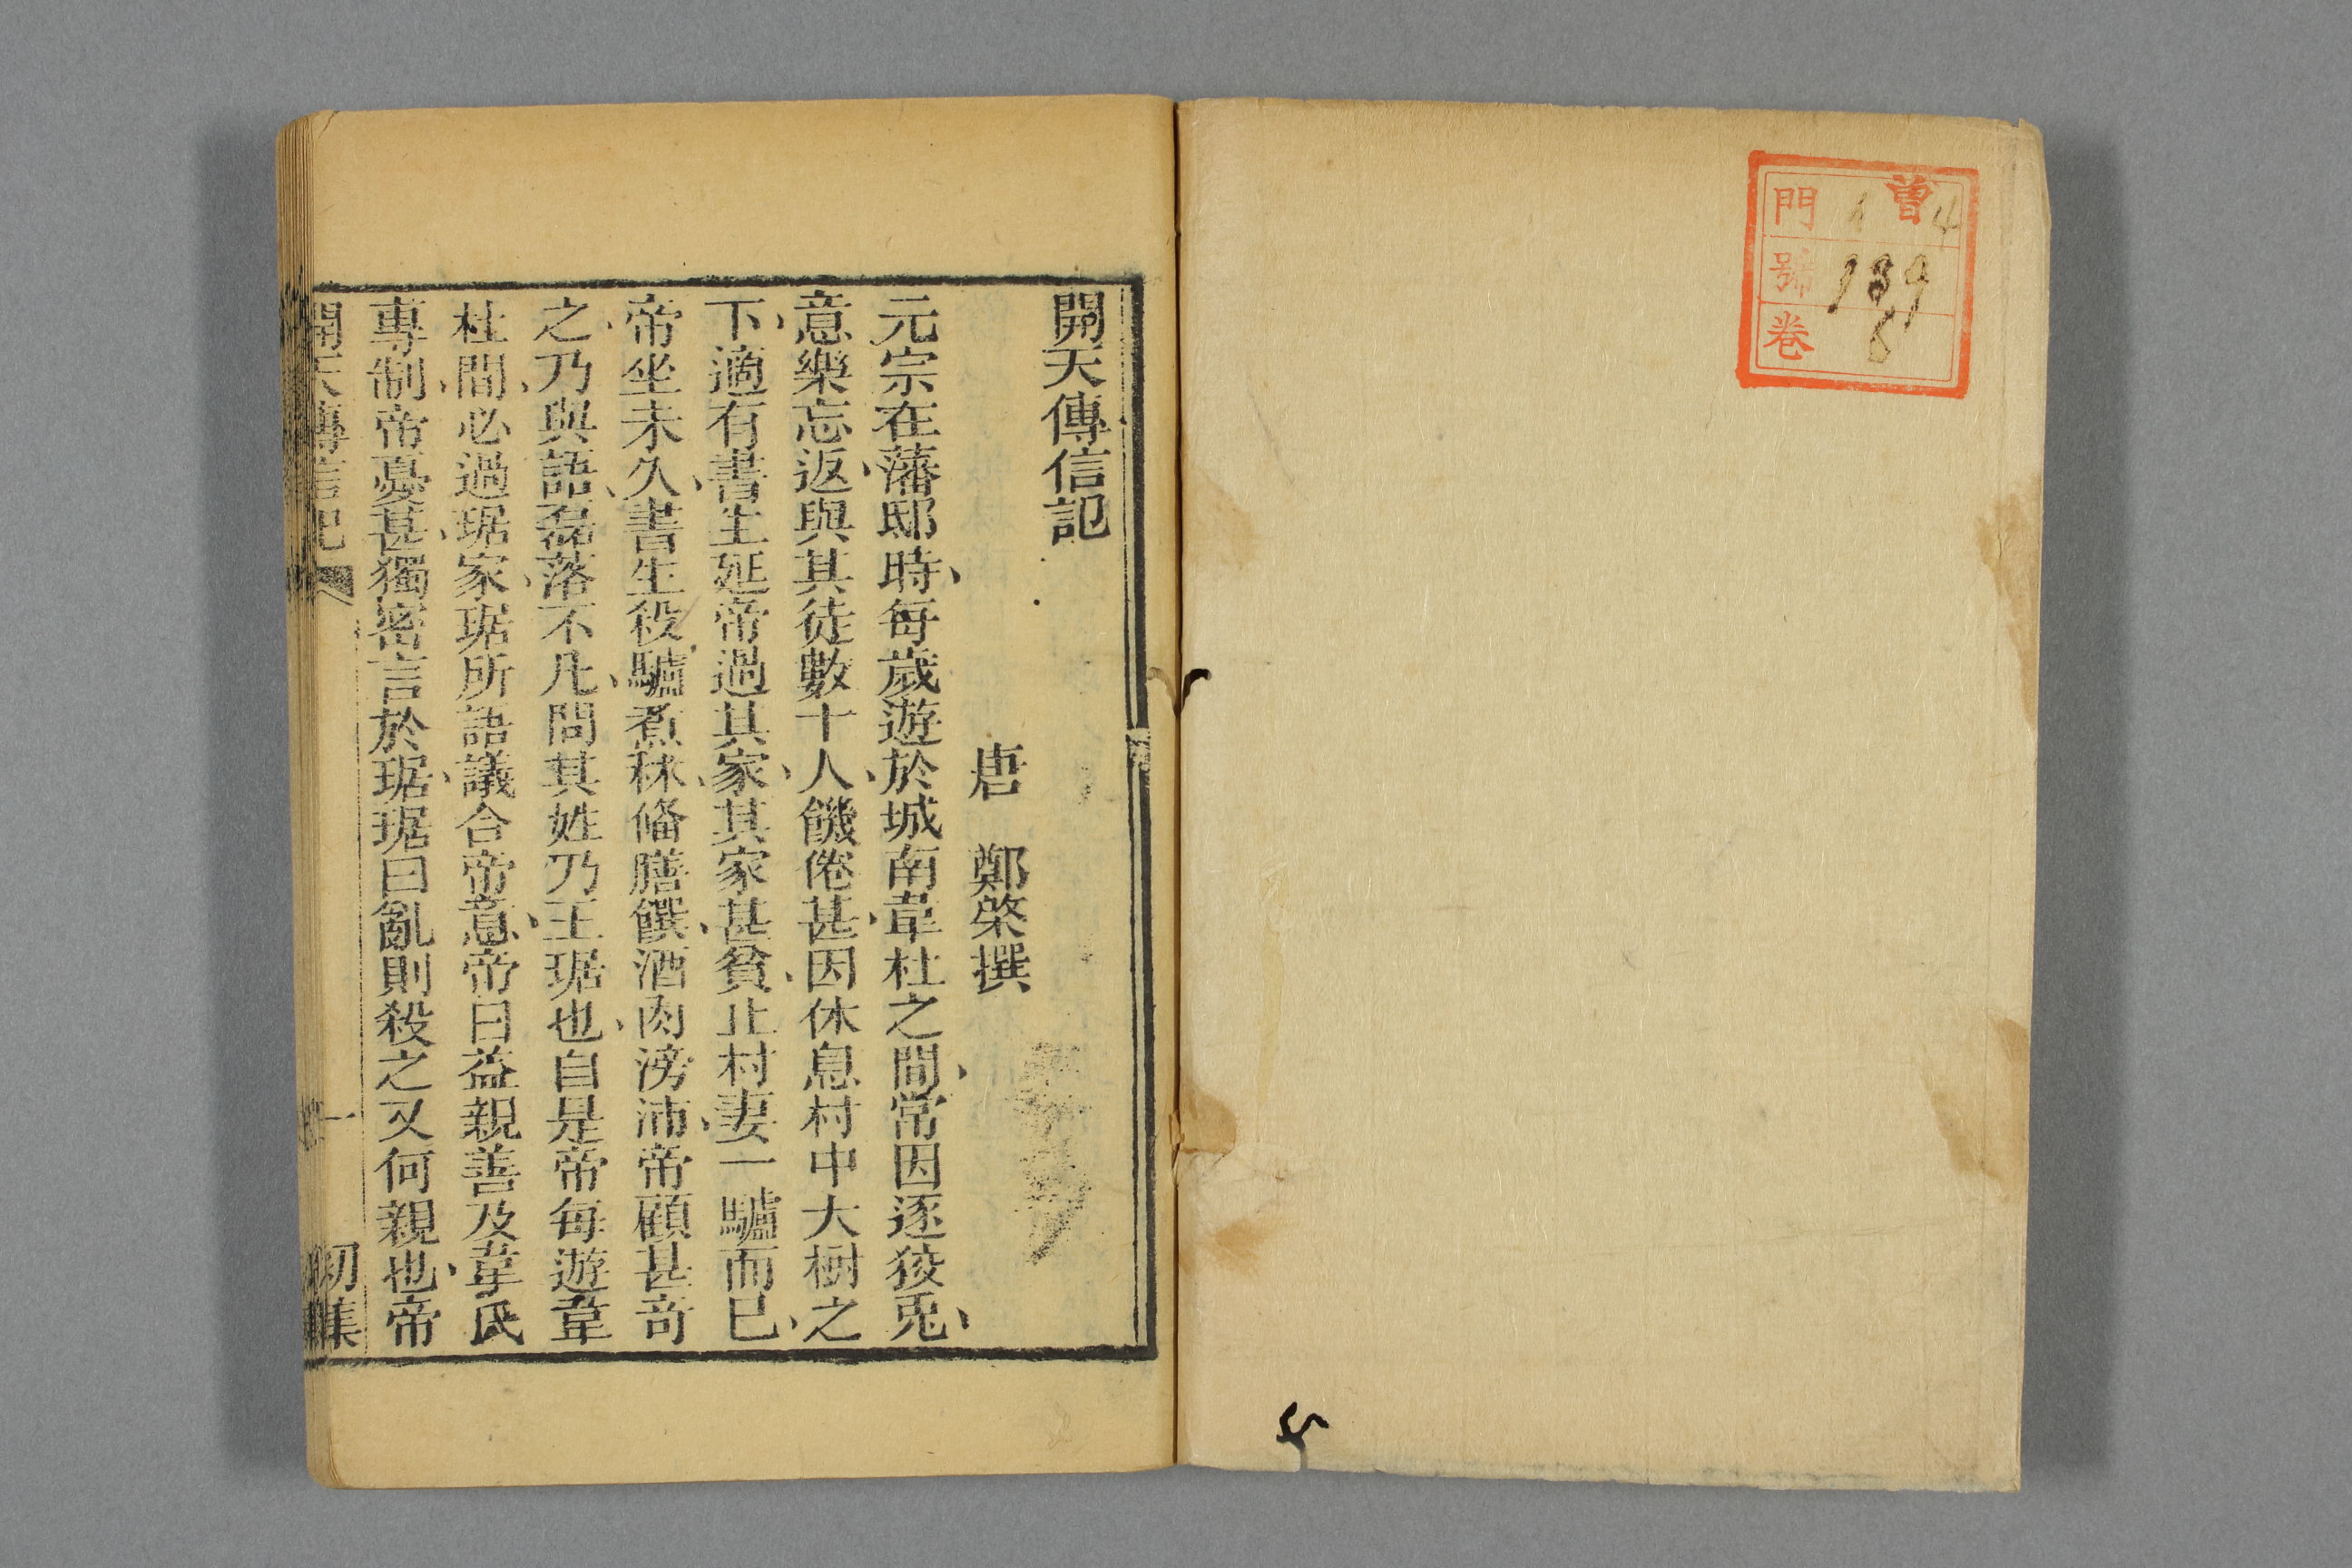 曾
門 1 4
號 189
卷 6
開天傳信記
唐 鄭棨撰
元宗在藩邸時、每歲遊於城南韋杜之間、常因逐狡兎、
意樂忘返、與其徒數十人、饑倦甚、因休息村中大樹之
下、適有書生延帝過其家、其家甚貧、止村妻一驢而已、
帝坐未久、書生殺驢煮秫、俻膳饌、酒肉滂沛、帝顧甚竒
之、乃與語、磊落不凡、問其姓乃王琚也、自是帝每遊韋
杜間、必過琚家、琚所語議合帝意、帝日益親善及韋氏
專制、帝憂甚、獨密言於琚、琚曰亂則殺之又何親也、帝
開天傳信記
一
初集